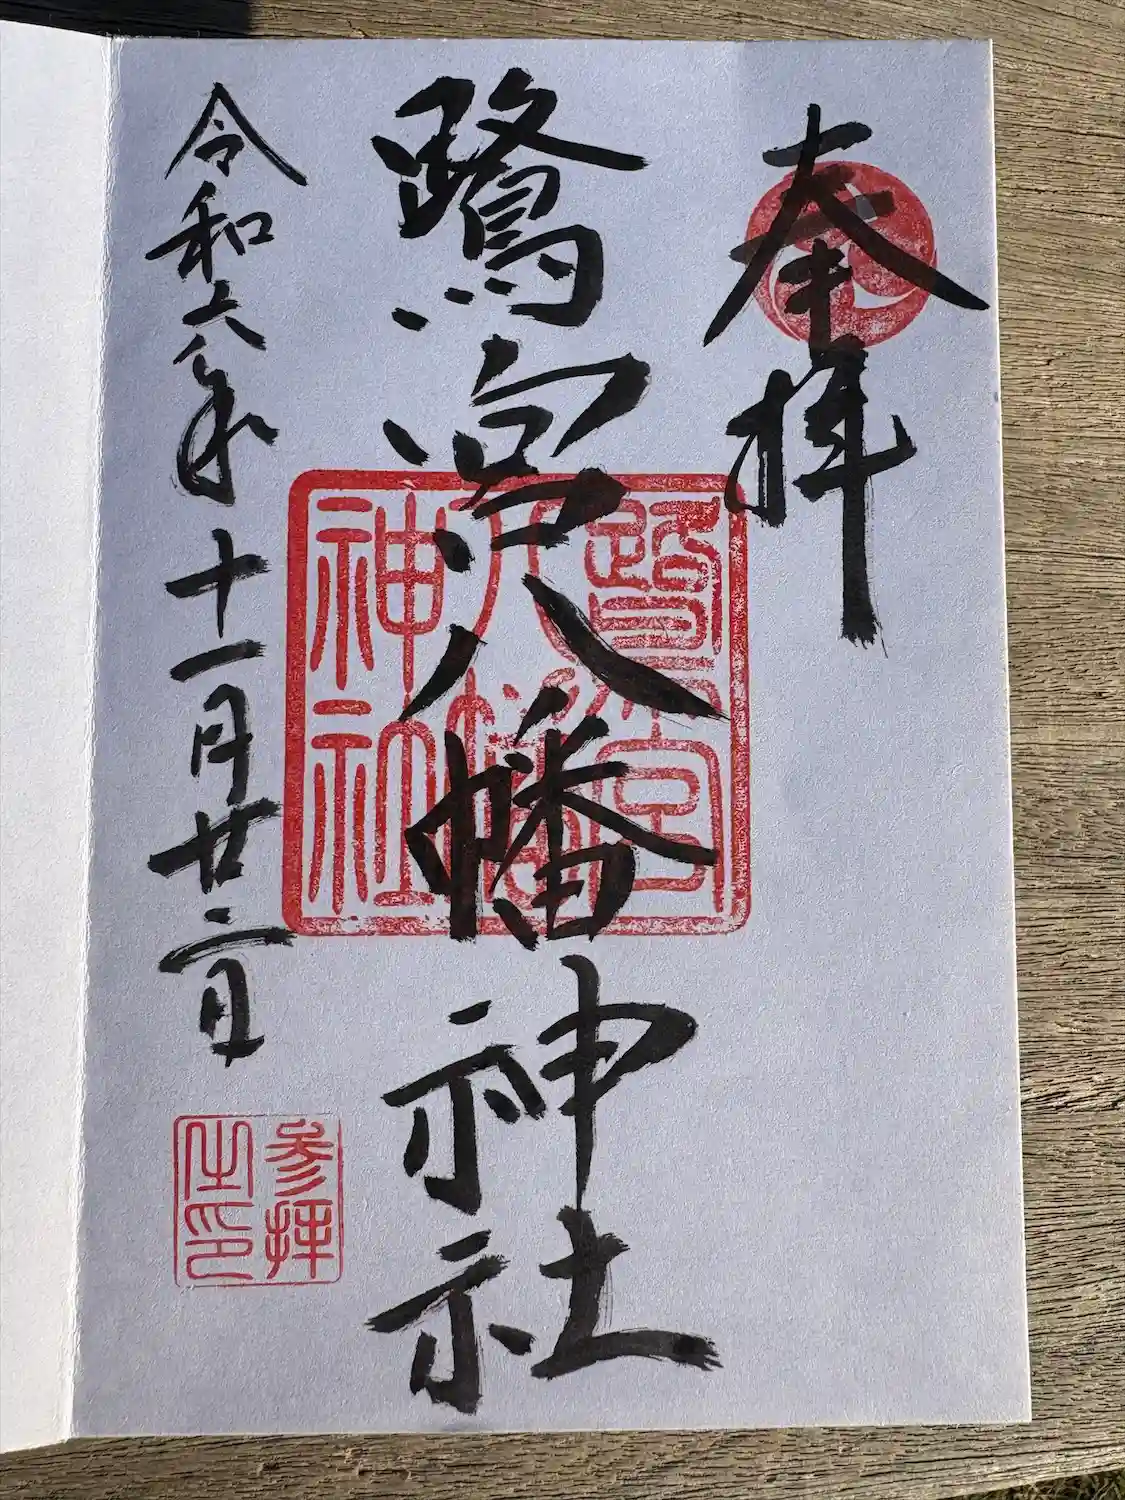 奉拝
鷺宮八幡神社
令和六年十一月廿二日
鷺宮
八幡
神社
参拝
之印